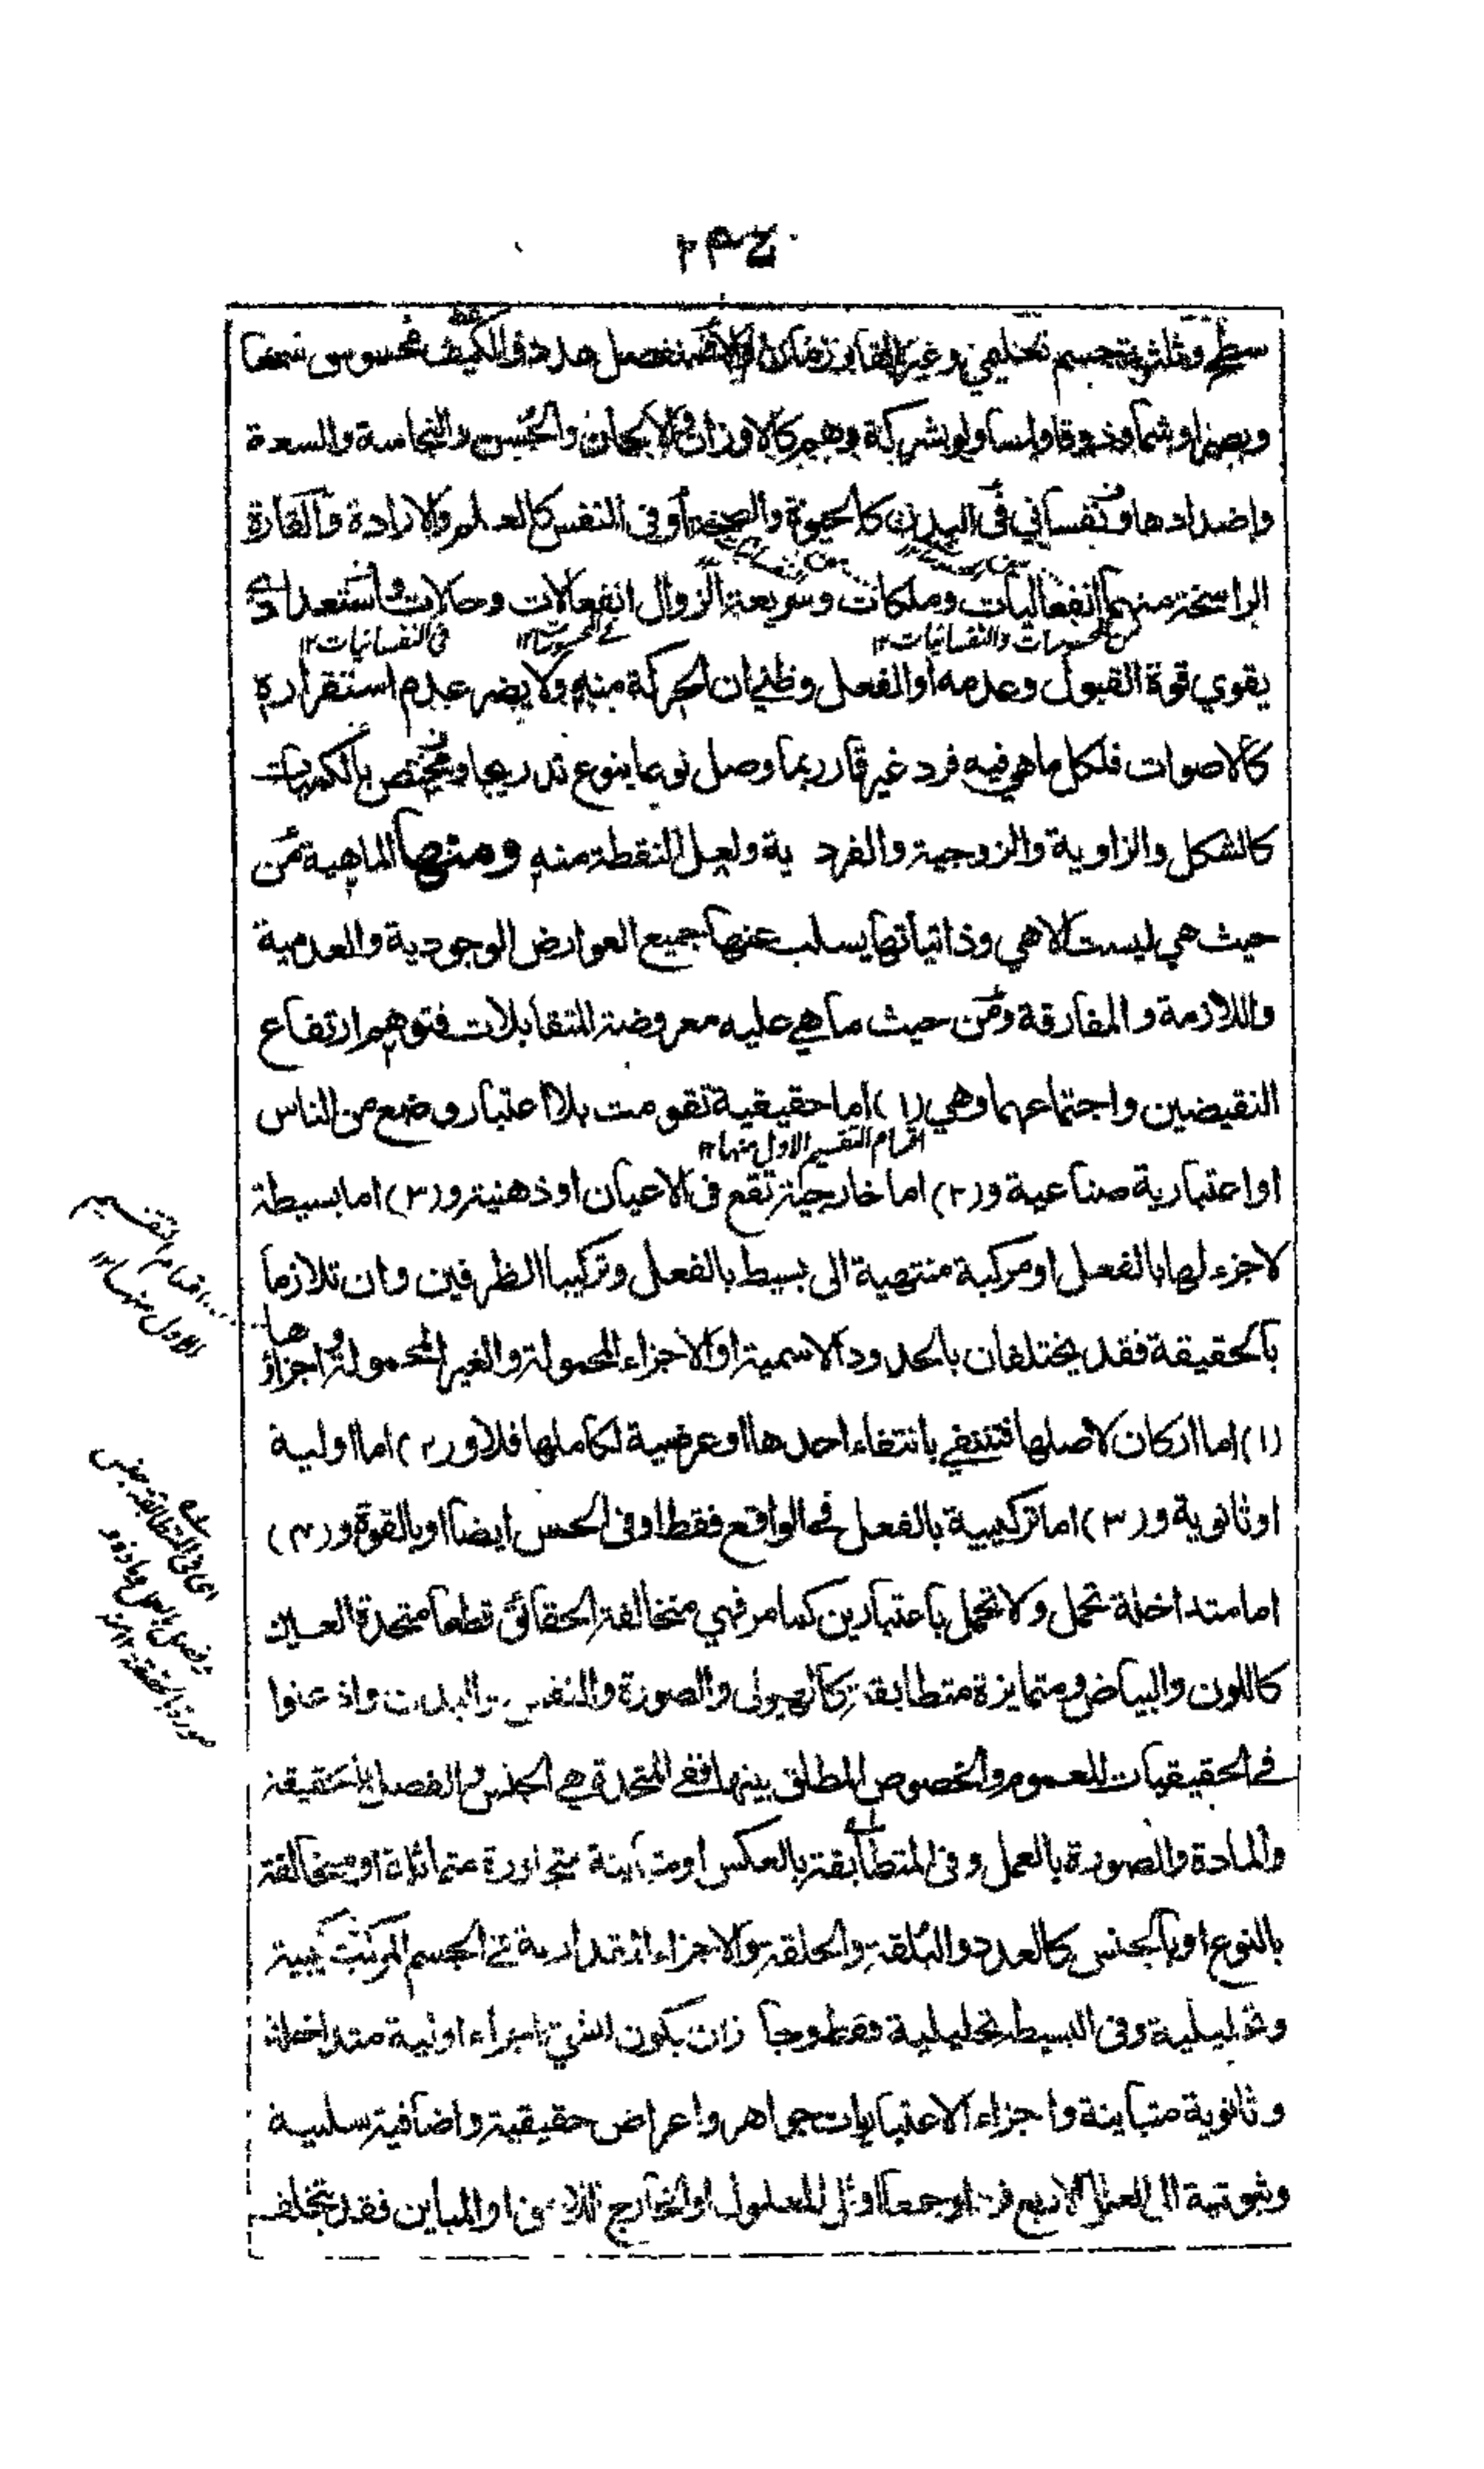 سطح وثلثية جسم تعليمي وغير القار زمان والمنفصل عدد والكيف محسوس سمعا
وبصرا وشما وذوقا ولمسا ولو بشركة وهم كالاوزان والالحان والحسن والنجاسة والسعدة
واضدادها ونفساني في البدن كالحيوة والصحة أو في النفس كالعلم والارادة والقدرة
الراسخة منهما انفعاليات وملكات وسريعة الزوال انفعالات وحالات واستعدادي
من المحسوسات والنفسانيات ١٢
في المحسوسات ١٢
في النفسانيات ١٢
يقوي قوة القبول وعدمه او الفعل وظني ان الحركة منه ولا يضر عدم استقراره
كالاصوات فلكل ما هي فيه فرد غير قار ربما وصل نوعا بنوع تدريجا ومختص بالكميات
كالشكل والزاوية والزوجية والفردية ولعل النقطة منه ومنها الماهية من
حيث هي ليست الا هي وذاتياتها يسلب عنها جميع العوارض الوجودية والعدمية
واللازمة والمفارقة ومن حيث ما هي عليه معروضة للتقابلات فتوهم ارتفاع
النقيضين واجتماعهما وهي (١) اما حقيقية تقومت بلا اعتبار وضع من الناس
اقسام التقسيم الاول منها ١٢
او اعتبارية صناعية و(٢) اما خارجية تقع في الاعيان او ذهنية و(٣) اما بسيطة
لا جزء لها بالفعل او مركبة منتهية الى بسيط بالفعل وتركيبا الظرفين وان تلازما
بالحقيقة فقد يختلفان بالحدود الاسمية او الاجزاء المحمولة والغير المحمولة واجزاؤها
اقسام التقسيم
الاول منها ١٢
(١) اما اركان لاصلها فتنتفي بانتفاء احدها او عرضية لكاملها فلا و(٢) اما اولية
او ثانوية و(٣) اما تركيبية بالفعل في الواقع فقط او في الحس ايضا او بالقوة و(٤)
اما متداخلة تحمل ولا تحمل باعتبارين كما مر فهي متخالفة الحقائق قطعا متحدة العين
كاللون والبياض ومتمايزة متطابقة كالهيولى والصورة والنفس والبدن واذعنوا
في الحقيقيات للعموم والخصوص المطلق بينها ففي المتحدة هي الجنس والفصل بالحقيقة
والمادة والصورة بالعمل وفي المتطابقة بالعكس او متباينة متجاورة متماثلة او متخالفة
بالنوع او بالجنس كالعدد والبلقة والخلقة والاجزاء المقدارية في الجسم المركب تركيبية
وتحليلية وفي البسيط تحليلية فقط وجاز ان يكون لشيء اجزاء اولية متداخلة
وثانوية متباينة واجزاء الاعتباريات جواهر واعراض حقيقية واضافية سلبية
وثبوتية الى العلل الاربع فردا وجمعا او الى المعلول او الخارج اللازم او المباين فقد يتخلف